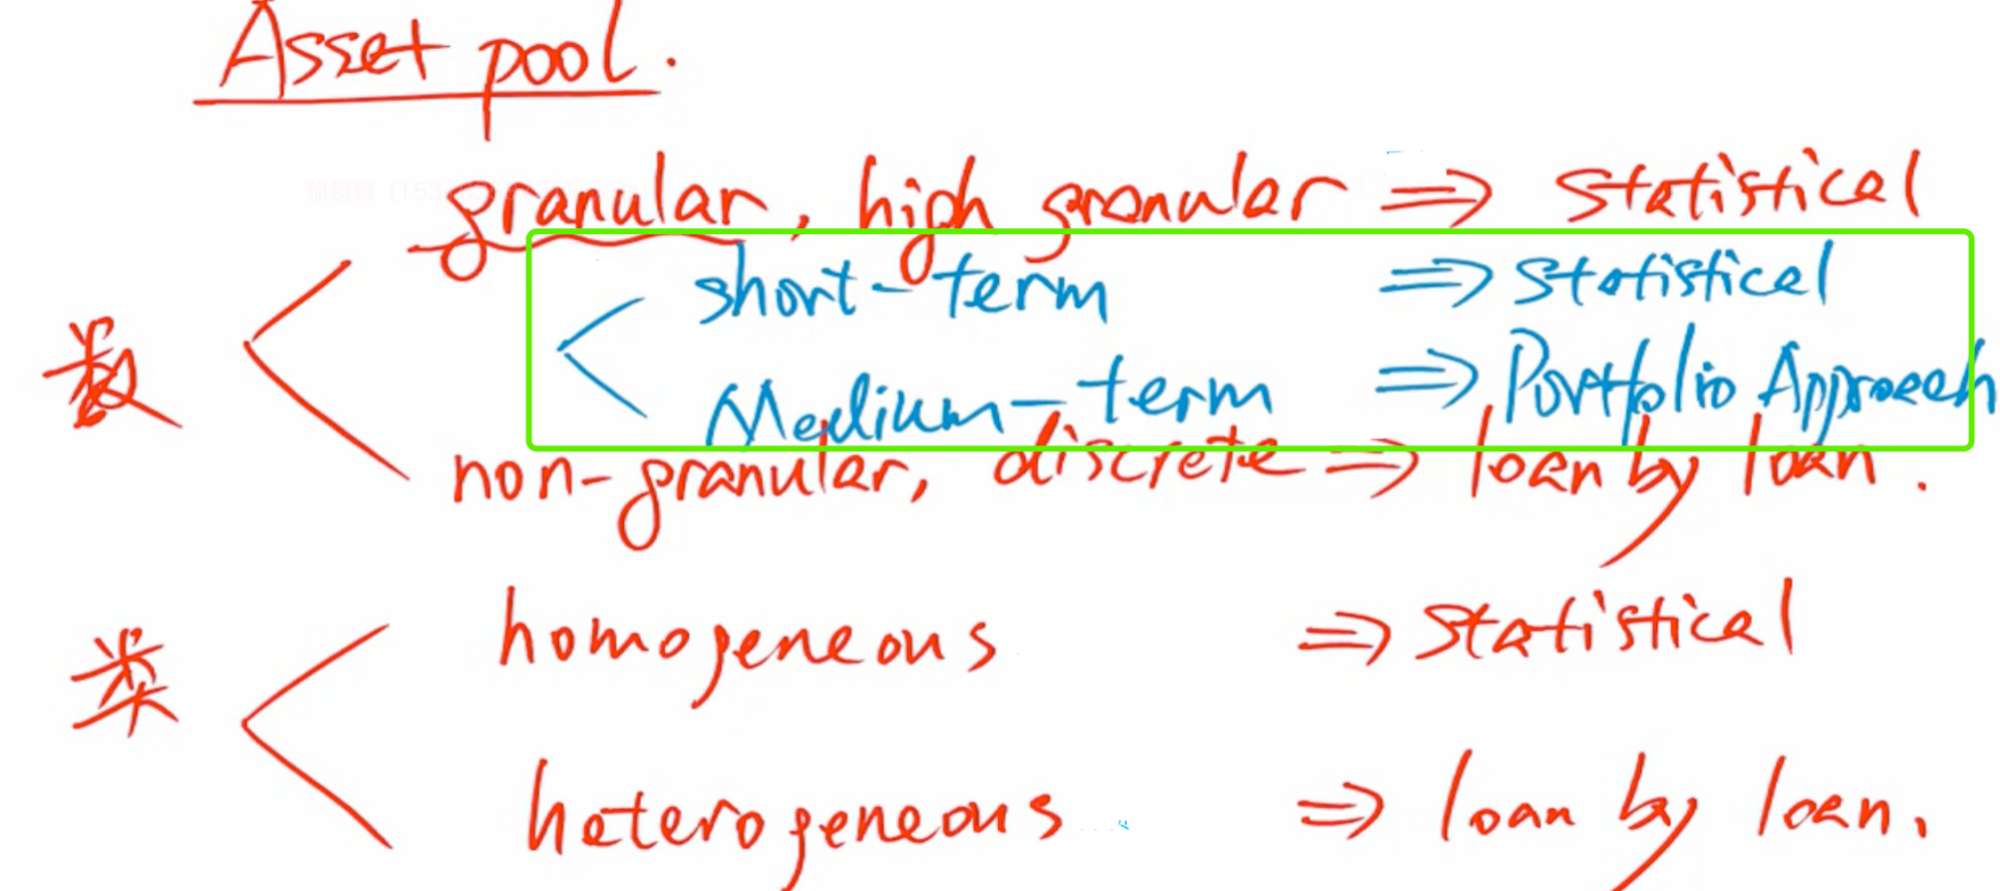 Asset pool.
granular, high granular ⇒ statistical
short-term ⇒ statistical
数
Medium-term ⇒ Portfolio Approach
non-granular, discrete ⇒ loan by loan.
homogeneous ⇒ statistical
类
heterogeneous ⇒ loan by loan.